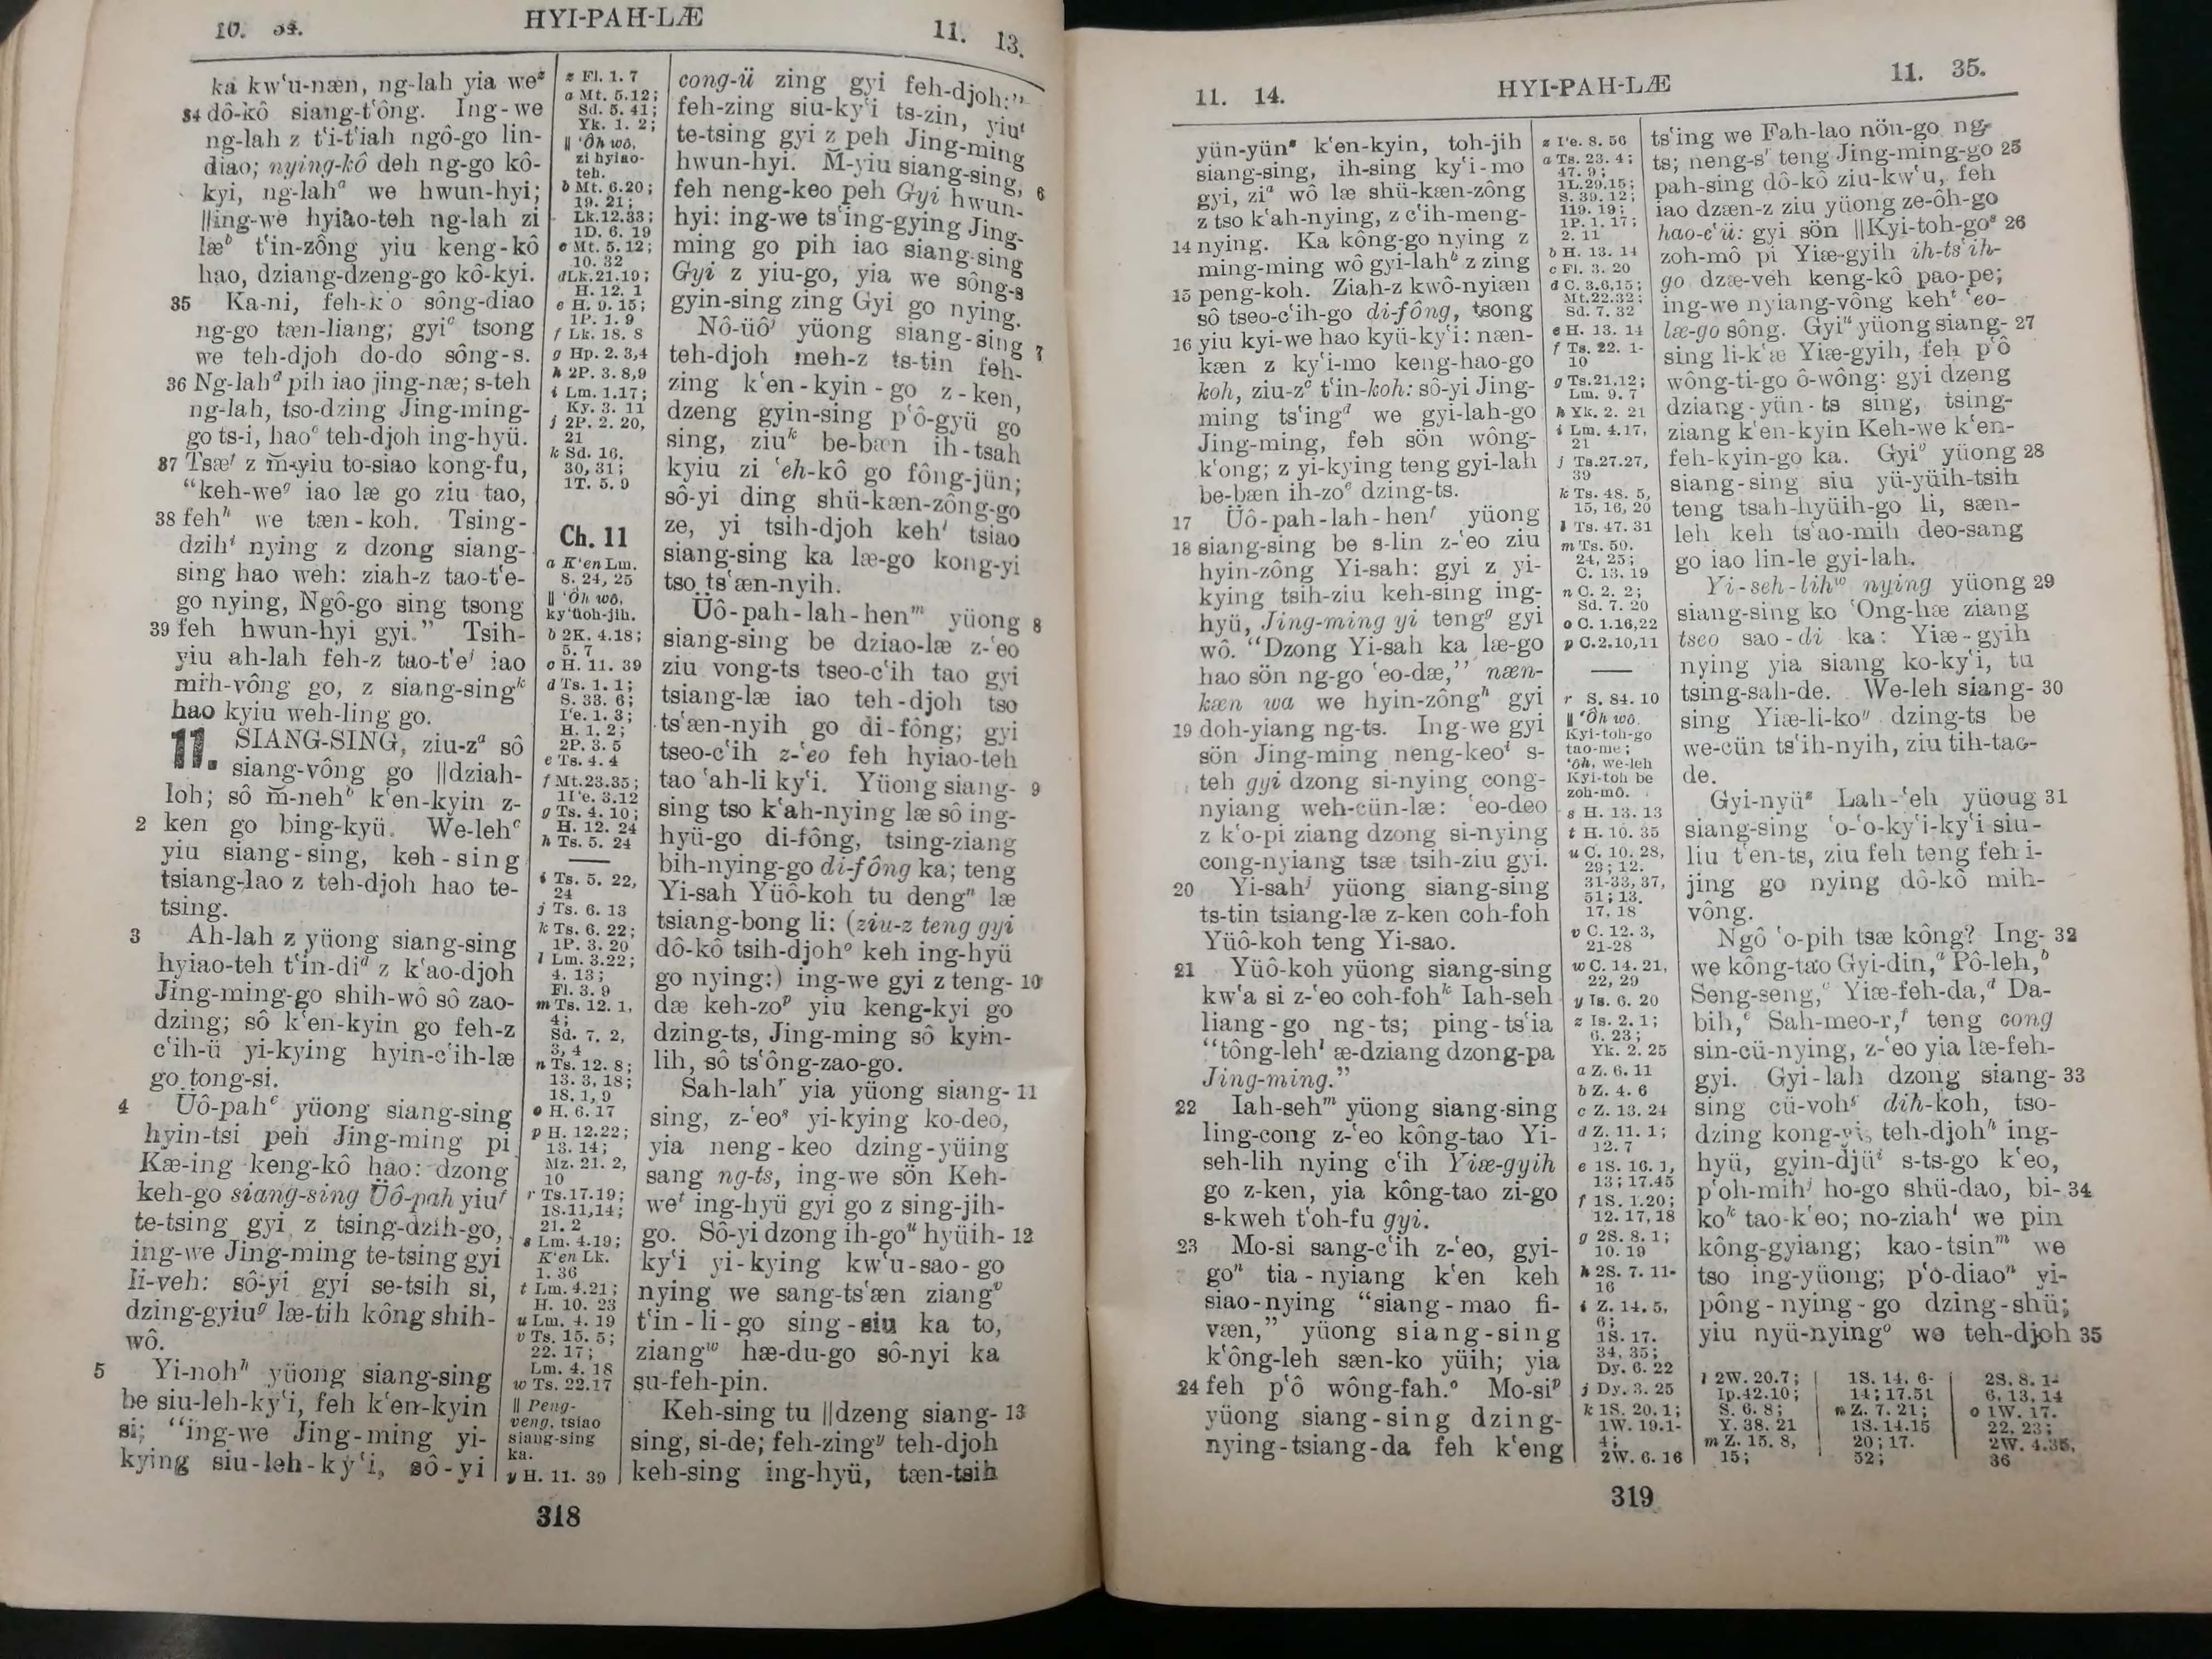 10. 34.
HYI-PAH-LÆ
11. 13.
ka kwʻu-næn, ng-lah yia weᶻ
34 dô-kô siang-tʻông. Ing-we
ng-lah z tʻi-tʻiah ngô-go lin-
diao; nying-kô deh ng-go kô-
kyi, ng-lahᵃ we hwun-hyi;
||ing-we hyiao-teh ng-lah zi
læᵇ tʻin-zông yiu keng-kô
hao, dziang-dzeng-go kô-kyi.
35 Ka-ni, feh-kʻo sông-diao
ng-go tæn-liang; gyiᶜ tsong
we teh-djoh do-do sông-s.
36 Ng-lahᵈ pih iao jing-næ; s-teh
ng-lah, tso-dzing Jing-ming-
go ts-i, haoᵉ teh-djoh ing-hyü.
37 Tsæᶠ z m̆-yiu to-siao kong-fu,
“keh-weᵍ iao læ go ziu tao,
38 fehʰ we tæn-koh. Tsing-
dzihⁱ nying z dzong siang-
sing hao weh: ziah-z tao-tʻe-
go nying, Ngô-go sing tsong
39 feh hwun-hyi gyi.” Tsih-
yiu ah-lah feh-z tao-tʻeʲ iao
mih-vông go, z siang-singᵏ
hao kyiu weh-ling go.
11. SIANG-SING, ziu-zᵃ sô
siang-vông go ||dziah-
loh; sô m̆-nehᵇ kʻen-kyin z-
ken go bing-kyü. We-lehᶜ
2 yiu siang-sing, keh-sing
tsiang-lao z teh-djoh hao te-
tsing.
3 Ah-lah z yüong siang-sing
hyiao-teh tʻin-diᵈ z kʻao-djoh
Jing-ming-go shih-wô sô zao-
dzing; sô kʻen-kyin go feh-z
cʻih-ü yi-kying hyin-cʻih-læ
go tong-si.
4 Üô-pahᵉ yüong siang-sing
hyin-tsi peh Jing-ming pi
Kæ-ing keng-kô hao: dzong
keh-go siang-sing Üô-pah yiuᶠ
te-tsing gyi z tsing-dzih-go,
ing-we Jing-ming te-tsing gyi
li-veh: sô-yi gyi se-tsih si,
dzing-gyiuᵍ læ-tih kông shih-
wô.
5 Yi-nohʰ yüong siang-sing
be siu-leh-kyʻi, feh kʻen-kyin
si; “ing-we Jing-ming yi-
kying siu-leh-kyʻi, sô-yi
z Fl. 1. 7
a Mt. 5.12;
Sd. 5. 41;
Yk. 1. 2;
|| ʻÔh wô,
zi hyiao-
teh.
b Mt. 6.20;
19. 21;
Lk.12.33;
1D. 6. 19
c Mt. 5.12;
10. 32
d Lk.21.19;
H. 12. 1
e H. 9. 15;
1P. 1. 9
f Lk. 18. 8
g Hp. 2. 3,4
h 2P. 3. 8,9
i Lm. 1.17;
Ky. 3. 11
j 2P. 2. 20,
21
k Sd. 16.
30, 31;
1T. 5. 9
Ch. 11
a Kʻen Lm.
8. 24, 25
|| ʻÔh wô,
kyʻüoh-jih.
b 2K. 4.18;
5. 7
c H. 11. 39
d Ts. 1. 1;
S. 33. 6;
Iʻe. 1. 3;
H. 1. 2;
2P. 3. 5
e Ts. 4. 4
f Mt.23.35;
1Iʻe. 3.12
g Ts. 4. 10;
H. 12. 24
h Ts. 5. 24
i Ts. 5. 22,
24
j Ts. 6. 13
k Ts. 6. 22;
1P. 3. 20
l Lm. 3.22;
4. 13;
Fl. 3. 9
m Ts. 12. 1,
4;
Sd. 7. 2,
3, 4
n Ts. 12. 8;
13. 3, 18;
18. 1, 9
o H. 6. 17
p H. 12.22;
13. 14;
Mz. 21. 2,
10
r Ts.17.19;
18.11,14;
21. 2
s Lm. 4.19;
Kʻen Lk.
1. 36
t Lm. 4.21;
H. 10. 23
u Lm. 4. 19
v Ts. 15. 5;
22. 17;
Lm. 4. 18
w Ts. 22.17
|| Peng-
veng, tsiao
siang-sing
ka.
y H. 11. 39
cong-ü zing gyi feh-djoh:”
feh-zing siu-kyʻi ts-zin, yiuᶦ
te-tsing gyi z peh Jing-ming
hwun-hyi. M̆-yiu siang-sing, 6
feh neng-keo peh Gyi hwun-
hyi: ing-we tsʻing-gying Jing-
ming go pih iao siang-sing
Gyi z yiu-go, yia we sông-s
gyin-sing zing Gyi go nying.
Nô-üôʲ yüong siang-sing 7
teh-djoh meh-z ts-tin feh-
zing kʻen-kyin-go z-ken,
dzeng gyin-sing pʻô-gyü go
sing, ziuᵏ be-bæn ih-tsah
kyiu zi ʻeh-kô go fông-jün;
sô-yi ding shü-kæn-zông-go
ze, yi tsih-djoh kehˡ tsiao
siang-sing ka læ-go kong-yi
tso tsʻæn-nyih.
Üô-pah-lah-henᵐ yüong 8
siang-sing be dziao-læ z-ʻeo
ziu vong-ts tseo-cʻih tao gyi
tsiang-læ iao teh-djoh tso
tsʻæn-nyih go di-fông; gyi
tseo-cʻih z-ʻeo feh hyiao-teh
tao ʻah-li kyʻi. Yüong siang- 9
sing tso kʻah-nying læ sô ing-
hyü-go di-fông, tsing-ziang
bih-nying-go di-fông ka; teng
Yi-sah Yüô-koh tu dengⁿ læ
tsiang-bong li: (ziu-z teng gyi
dô-kô tsih-djohᵒ keh ing-hyü
go nying:) ing-we gyi z teng- 10
dæ keh-zoᵖ yiu keng-kyi go
dzing-ts, Jing-ming sô kyin-
lih, sô tsʻông-zao-go.
Sah-lahʳ yia yüong siang- 11
sing, z-ʻeoˢ yi-kying ko-deo,
yia neng-keo dzing-yüing
sang ng-ts, ing-we sön Keh-
weᵗ ing-hyü gyi go z sing-jih-
go. Sô-yi dzong ih-goᵘ hyüih- 12
kyʻi yi-kying kwʻu-sao-go
nying we sang-tsʻæn ziangᵛ
tʻin-li-go sing-siu ka to,
ziangʷ hæ-du-go sô-nyi ka
su-feh-pin.
Keh-sing tu ||dzeng siang- 13
sing, si-de; feh-zingʸ teh-djoh
keh-sing ing-hyü, tæn-tsih
318
11. 14.
HYI-PAH-LÆ
11. 35.
yün-yünᶻ kʻen-kyin, toh-jih
siang-sing, ih-sing kyʻi-mo
gyi, ziᵃ wô læ shü-kæn-zông
z tso kʻah-nying, z cʻih-meng-
14 nying. Ka kông-go nying z
ming-ming wô gyi-lahᵇ z zing
15 peng-koh. Ziah-z kwô-nyiæn
sô tseo-cʻih-go di-fông, tsong
16 yiu kyi-we hao kyü-kyʻi: næn-
kæn z kyʻi-mo keng-hao-go
koh, ziu-zᶜ tʻin-koh: sô-yi Jing-
ming tsʻingᵈ we gyi-lah-go
Jing-ming, feh sön wông-
kʻong; z yi-kying teng gyi-lah
be-bæn ih-zoᵉ dzing-ts.
17 Üô-pah-lah-henᶠ yüong
18 siang-sing be s-lin z-ʻeo ziu
hyin-zông Yi-sah: gyi z yi-
kying tsih-ziu keh-sing ing-
hyü, Jing-ming yi tengᵍ gyi
wô. “Dzong Yi-sah ka læ-go
hao sön ng-go ʻeo-dæ,” næn-
kæn wa we hyin-zôngʰ gyi
19 doh-yiang ng-ts. Ing-we gyi
sön Jing-ming neng-keoⁱ s-
teh gyi dzong si-nying cong-
nyiang weh-cün-læ: ʻeo-deo
z kʻo-pi ziang dzong si-nying
cong-nyiang tsæ tsih-ziu gyi.
20 Yi-sahʲ yüong siang-sing
ts-tin tsiang-læ z-ken coh-foh
Yüô-koh teng Yi-sao.
21 Yüô-koh yüong siang-sing
kwʻa si z-ʻeo coh-fohᵏ Iah-seh
liang-go ng-ts; ping-tsʻia
“tông-lehˡ æ-dziang dzong-pa
Jing-ming.”
22 Iah-sehᵐ yüong siang-sing
ling-cong z-ʻeo kông-tao Yi-
seh-lih nying cʻih Yiæ-gyih
go z-ken, yia kông-tao zi-go
s-kweh tʻoh-fu gyi.
23 Mo-si sang-cʻih z-ʻeo, gyi-
goⁿ tia-nyiang kʻen keh
siao-nying “siang-mao fi-
væn,” yüong siang-sing
kʻông-leh sæn-ko yüih; yia
24 feh pʻô wông-fah.ᵒ Mo-siᵖ
yüong siang-sing dzing-
nying-tsiang-da feh kʻeng
z Iʻe. 8. 56
a Ts. 23. 4;
47. 9;
1L.29.15;
S. 39. 12;
119. 19;
1P. 1. 17;
2. 11
b H. 13. 14
c Fl. 3. 20
d C. 3.6,15;
Mt.22.32;
Sd. 7. 32
e H. 13. 14
f Ts. 22. 1-
10
g Ts.21.12;
Lm. 9. 7
h Yk. 2. 21
i Lm. 4.17,
21
j Ts.27.27,
39
k Ts. 48. 5,
15, 16, 20
l Ts. 47. 31
m Ts. 50.
24, 25;
C. 13. 19
n C. 2. 2;
Sd. 7. 20
o C. 1.16,22
p C.2.10,11
r S. 84. 10
|| ʻÔh wô.
Kyi-toh-go
tao-me;
ʻôh, we-leh
Kyi-toh be
zoh-mô.
s H. 13. 13
t H. 10. 35
u C. 10. 28,
29; 12.
31-33, 37,
51; 13.
17, 18
v C. 12. 3,
21-28
w C. 14. 21,
22, 29
y Is. 6. 20
z Is. 2. 1;
6. 23;
Yk. 2. 25
a Z. 6. 11
b Z. 4. 6
c Z. 13. 24
d Z. 11. 1;
12. 7
e 1S. 16. 1,
13; 17.45
f 1S. 1.20;
12. 17, 18
g 2S. 8. 1;
10. 19
h 2S. 7. 11-
16
i Z. 14. 5,
6;
1S. 17.
34, 35;
Dy. 6. 22
j Dy. 3. 25
k 1S. 20. 1;
1W. 19.1-
4;
2W. 6. 16
tsʻing we Fah-lao nön-go ng-
ts; neng-sʳ teng Jing-ming-go 25
pah-sing dô-kô ziu-kwʻu, feh
iao dzæn-z ziu yüong ze-ôh-go
hao-cʻü: gyi sön ||Kyi-toh-goˢ 26
zoh-mô pi Yiæ-gyih ih-tsʻih-
go dzæ-veh keng-kô pao-pe;
ing-we nyiang-vông kehᵗ ʻeo-
læ-go sông. Gyiᵘ yüong siang- 27
sing li-kʻæ Yiæ-gyih, feh pʻô
wông-ti-go ô-wông: gyi dzeng
dziang-yün-ts sing, tsing-
ziang kʻen-kyin Keh-we kʻen-
feh-kyin-go ka. Gyiᵛ yüong 28
siang-sing siu yü-yüih-tsih
teng tsah-hyüih-go li, sæn-
leh keh tsʻao-mih deo-sang
go iao lin-le gyi-lah.
Yi-seh-lihʷ nying yüong 29
siang-sing ko ʻOng-hæ ziang
tseo sao-di ka: Yiæ-gyih
nying yia siang ko-kyʻi, tu
tsing-sah-de. We-leh siang- 30
sing Yiæ-li-koʸ dzing-ts be
we-cün tsʻih-nyih, ziu tih-tao-
de.
Gyi-nyüᶻ Lah-ʻeh yüoug 31
siang-sing ʻo-ʻo-kyʻi-kyʻi siu-
liu tʻen-ts, ziu feh teng feh i-
jing go nying dô-kô mih-
vông.
Ngô ʻo-pih tsæ kông? Ing- 32
we kông-tao Gyi-din,ᵃ Pô-leh,ᵇ
Seng-seng,ᶜ Yiæ-feh-da,ᵈ Da-
bih,ᵉ Sah-meo-r,ᶠ teng cong
sin-cü-nying, z-ʻeo yia læ-feh-
gyi. Gyi-lah dzong siang- 33
sing cü-vohᵍ dih-koh, tso-
dzing kong-yi, teh-djohʰ ing-
hyü, gyin-djüⁱ s-ts-go kʻeo,
pʻoh-mihʲ ho-go shü-dao, bi- 34
koᵏ tao-kʻeo; no-ziahˡ we pin
kông-gyiang; kao-tsinᵐ we
tso ing-yüong; pʻô-diaoⁿ yi-
pông-nying-go dzing-shü;
yiu nyü-nyingᵒ we teh-djoh 35
l 2W. 20.7;
Ip.42.10;
S. 6. 8;
Y. 38. 21
m Z. 15. 8,
15;
1S. 14. 6-
14; 17.51
n Z. 7. 21;
1S. 14.15
20; 17.
52;
2S. 8. 1-
6, 13, 14
o 1W. 17.
22, 23;
2W. 4.35,
36
319